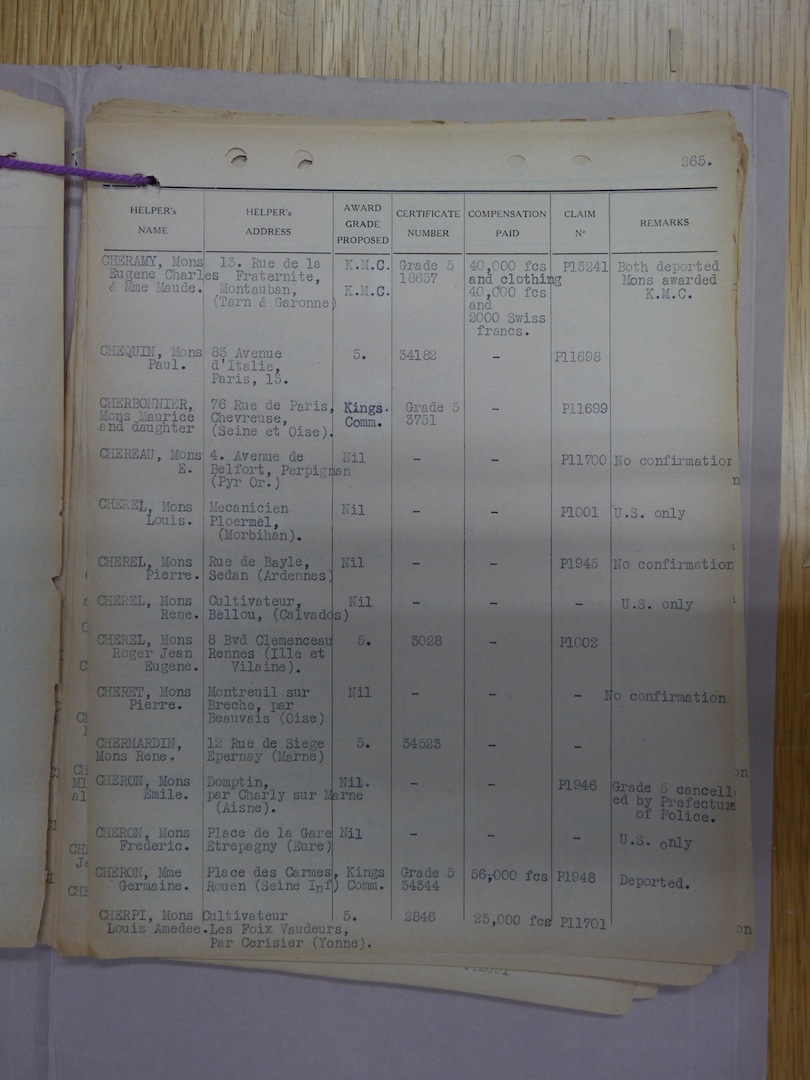 265.
HELPER's NAME HELPER's ADDRESS AWARD GRADE PROPOSED CERTIFICATE NUMBER COMPENSATION PAID CLAIM Nº REMARKS
CHERAMY, Mons 13. Rue de la K.M.C. Grade 5 40,000 fcs P13241 Both deported
Eugene Charles Fraternite, 18637 and clothing Mons awarded
& Mme Maude. Montauban, K.M.C. 40,000 fcs K.M.C.
(Tarn & Garonne) and
2000 Swiss
francs.
CHEQUIN, Mons 83 Avenue 5. 34182 - P11698
Paul. d'Italie,
Paris, 13.
CHERBONNIER, 76 Rue de Paris, Kings. Grade 5 - P11699
Mons Maurice Chevreuse, Comm. 3751
and daughter (Seine et Oise).
CHEREAU, Mons 4. Avenue de Nil - - P11700 No confirmation
E. Belfort, Perpignan
(Pyr Or.)
CHEREL, Mons Mecanicien Nil - - P1001 U.S. only
Louis. Ploermel,
(Morbihan).
CHEREL, Mons Rue de Bayle, Nil - - P1945 No confirmation
Pierre. Sedan (Ardennes)
CHEREL, Mons Cultivateur, Nil - - - U.S. only
Rene. Bellou, (Calvados)
CHEREL, Mons 8 Bvd Clemenceau 5. 3028 - P1002
Roger Jean Rennes (Ille et
Eugene. Vilaine).
CHERET, Mons Montreuil sur Nil - - - No confirmation
Pierre. Breche, par
Beauvais (Oise)
CHERMARDIN, 12 Rue de Siege 5. 34523 - -
Mons Rene. Epernay (Marne)
CHERON, Mons Domptin, Nil. - - P1946 Grade 5 cancell
Emile. par Charly sur Marne ed by Prefecture
(Aisne). of Police.
CHERON, Mons Place de la Gare Nil - - - U.S. only
Frederic. Etrepagny (Eure)
CHERON, Mme Place des Carmes, Kings Grade 5 56,000 fcs P1948 Deported.
Germaine. Rouen (Seine Inf) Comm. 34344
CHERPI, Mons Cultivateur 5. 2846 25,000 fcs P11701
Louis Amedee. Les Foix Vaudeurs,
Par Cerisier (Yonne).